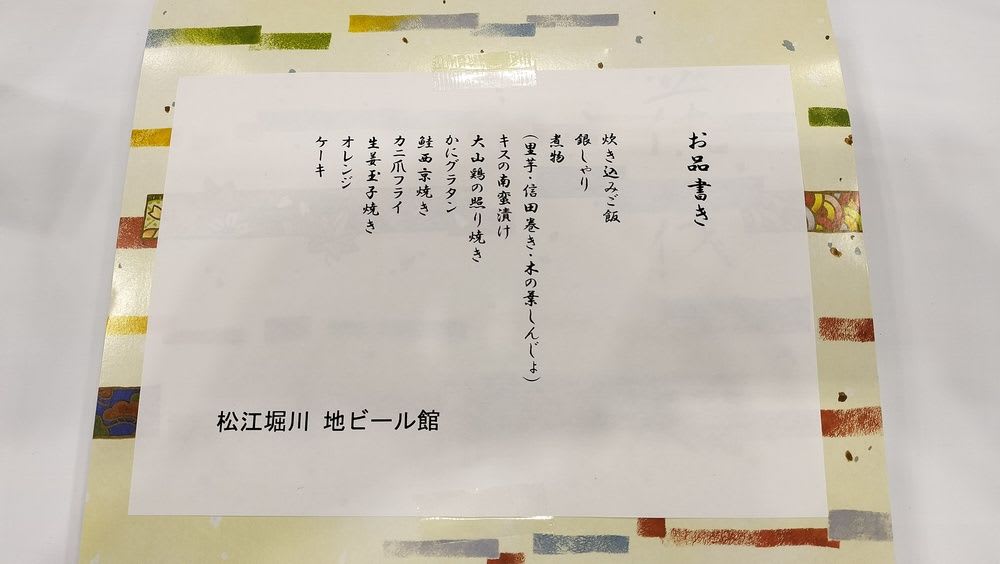 お品書き
炊き込みご飯
銀しゃり
煮物
(里芋・信田巻き・木の葉しんじょ)
キスの南蛮漬け
大山鶏の照り焼き
かにグラタン
鮭西京焼き
カニ爪フライ
生姜玉子焼き
オレンジ
ケーキ
松江堀川 地ビール館